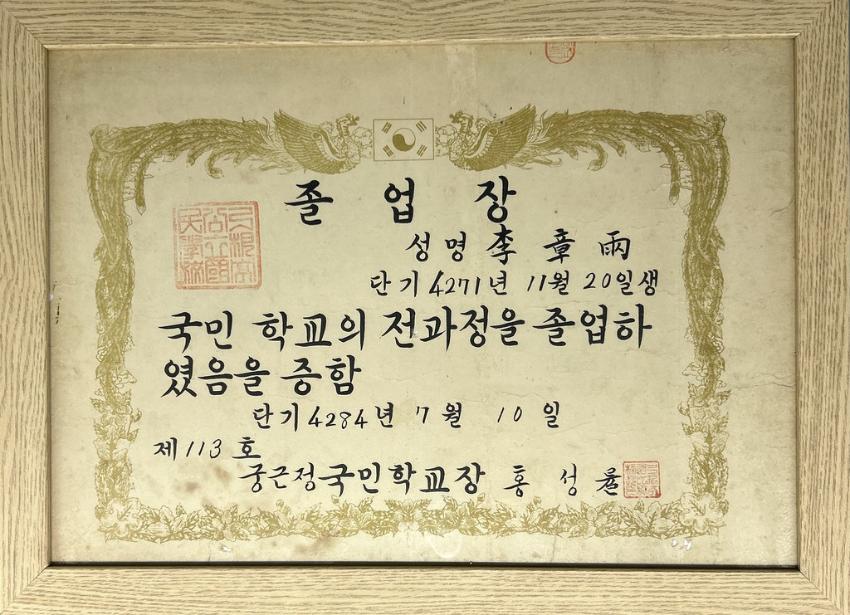 졸업장
성명 李章雨
단기 4271년 11월 20일생
국민 학교의 전과정을 졸업하
였음을 증함
단기 4284년 7월 10일
제 113 호
궁근정국민학교장 홍성